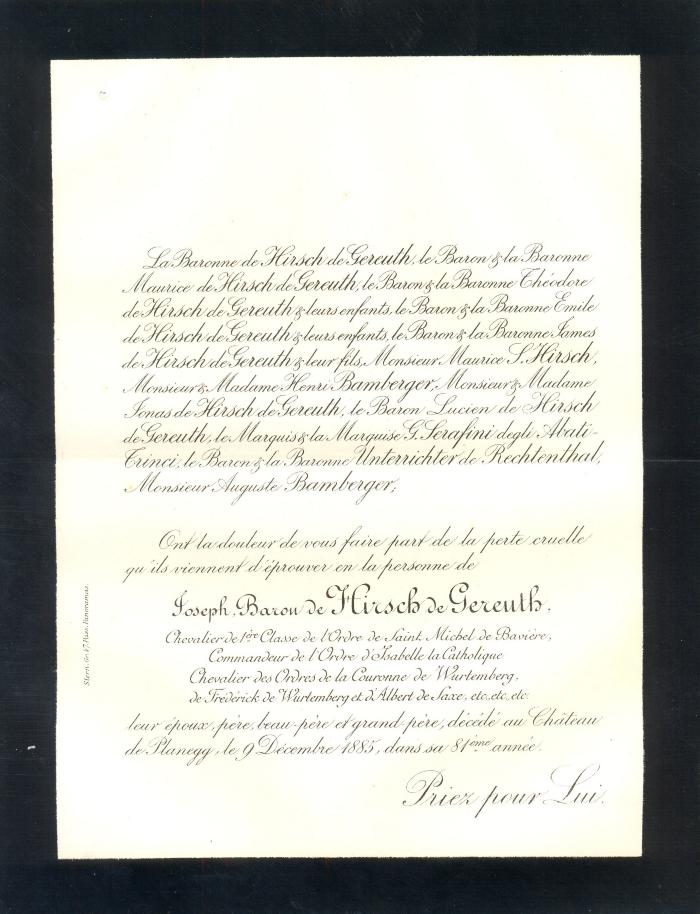 La Baronne de Hirsch de Gereuth, le Baron & la Baronne
Maurice de Hirsch de Gereuth, le Baron & la Baronne Théodore
de Hirsch de Gereuth & leurs enfants, le Baron & la Baronne Emile
de Hirsch de Gereuth & leurs enfants, le Baron & la Baronne James
de Hirsch de Gereuth & leur fils, Monsieur Maurice S. Hirsch,
Monsieur & Madame Henri Bamberger, Monsieur & Madame
Jonas de Hirsch de Gereuth, le Baron Lucien de Hirsch
de Gereuth, le Marquis & la Marquise G. Serafini degli Abati-
Trinci, le Baron & la Baronne Unterrichter de Rechtenthal,
Monsieur Auguste Bamberger;
Ont la douleur de vous faire part de la perte cruelle
qu'ils viennent d'éprouver en la personne de
Joseph, Baron de Hirsch de Gereuth,
Chevalier de 1ère Classe de l'Ordre de Saint Michel de Bavière,
Commandeur de l'Ordre d'Isabelle la Catholique
Chevalier des Ordres de la Couronne de Wurtemberg,
de Frédérick de Wurtemberg et d'Albert de Saxe, etc, etc, etc.
leur époux, père, beau-père et grand-père, décédé au Château
de Planegg, le 9 Décembre 1885, dans sa 81ème année.
Priez pour Lui.
Stern, Gr. 47, Pass. Panoramas.